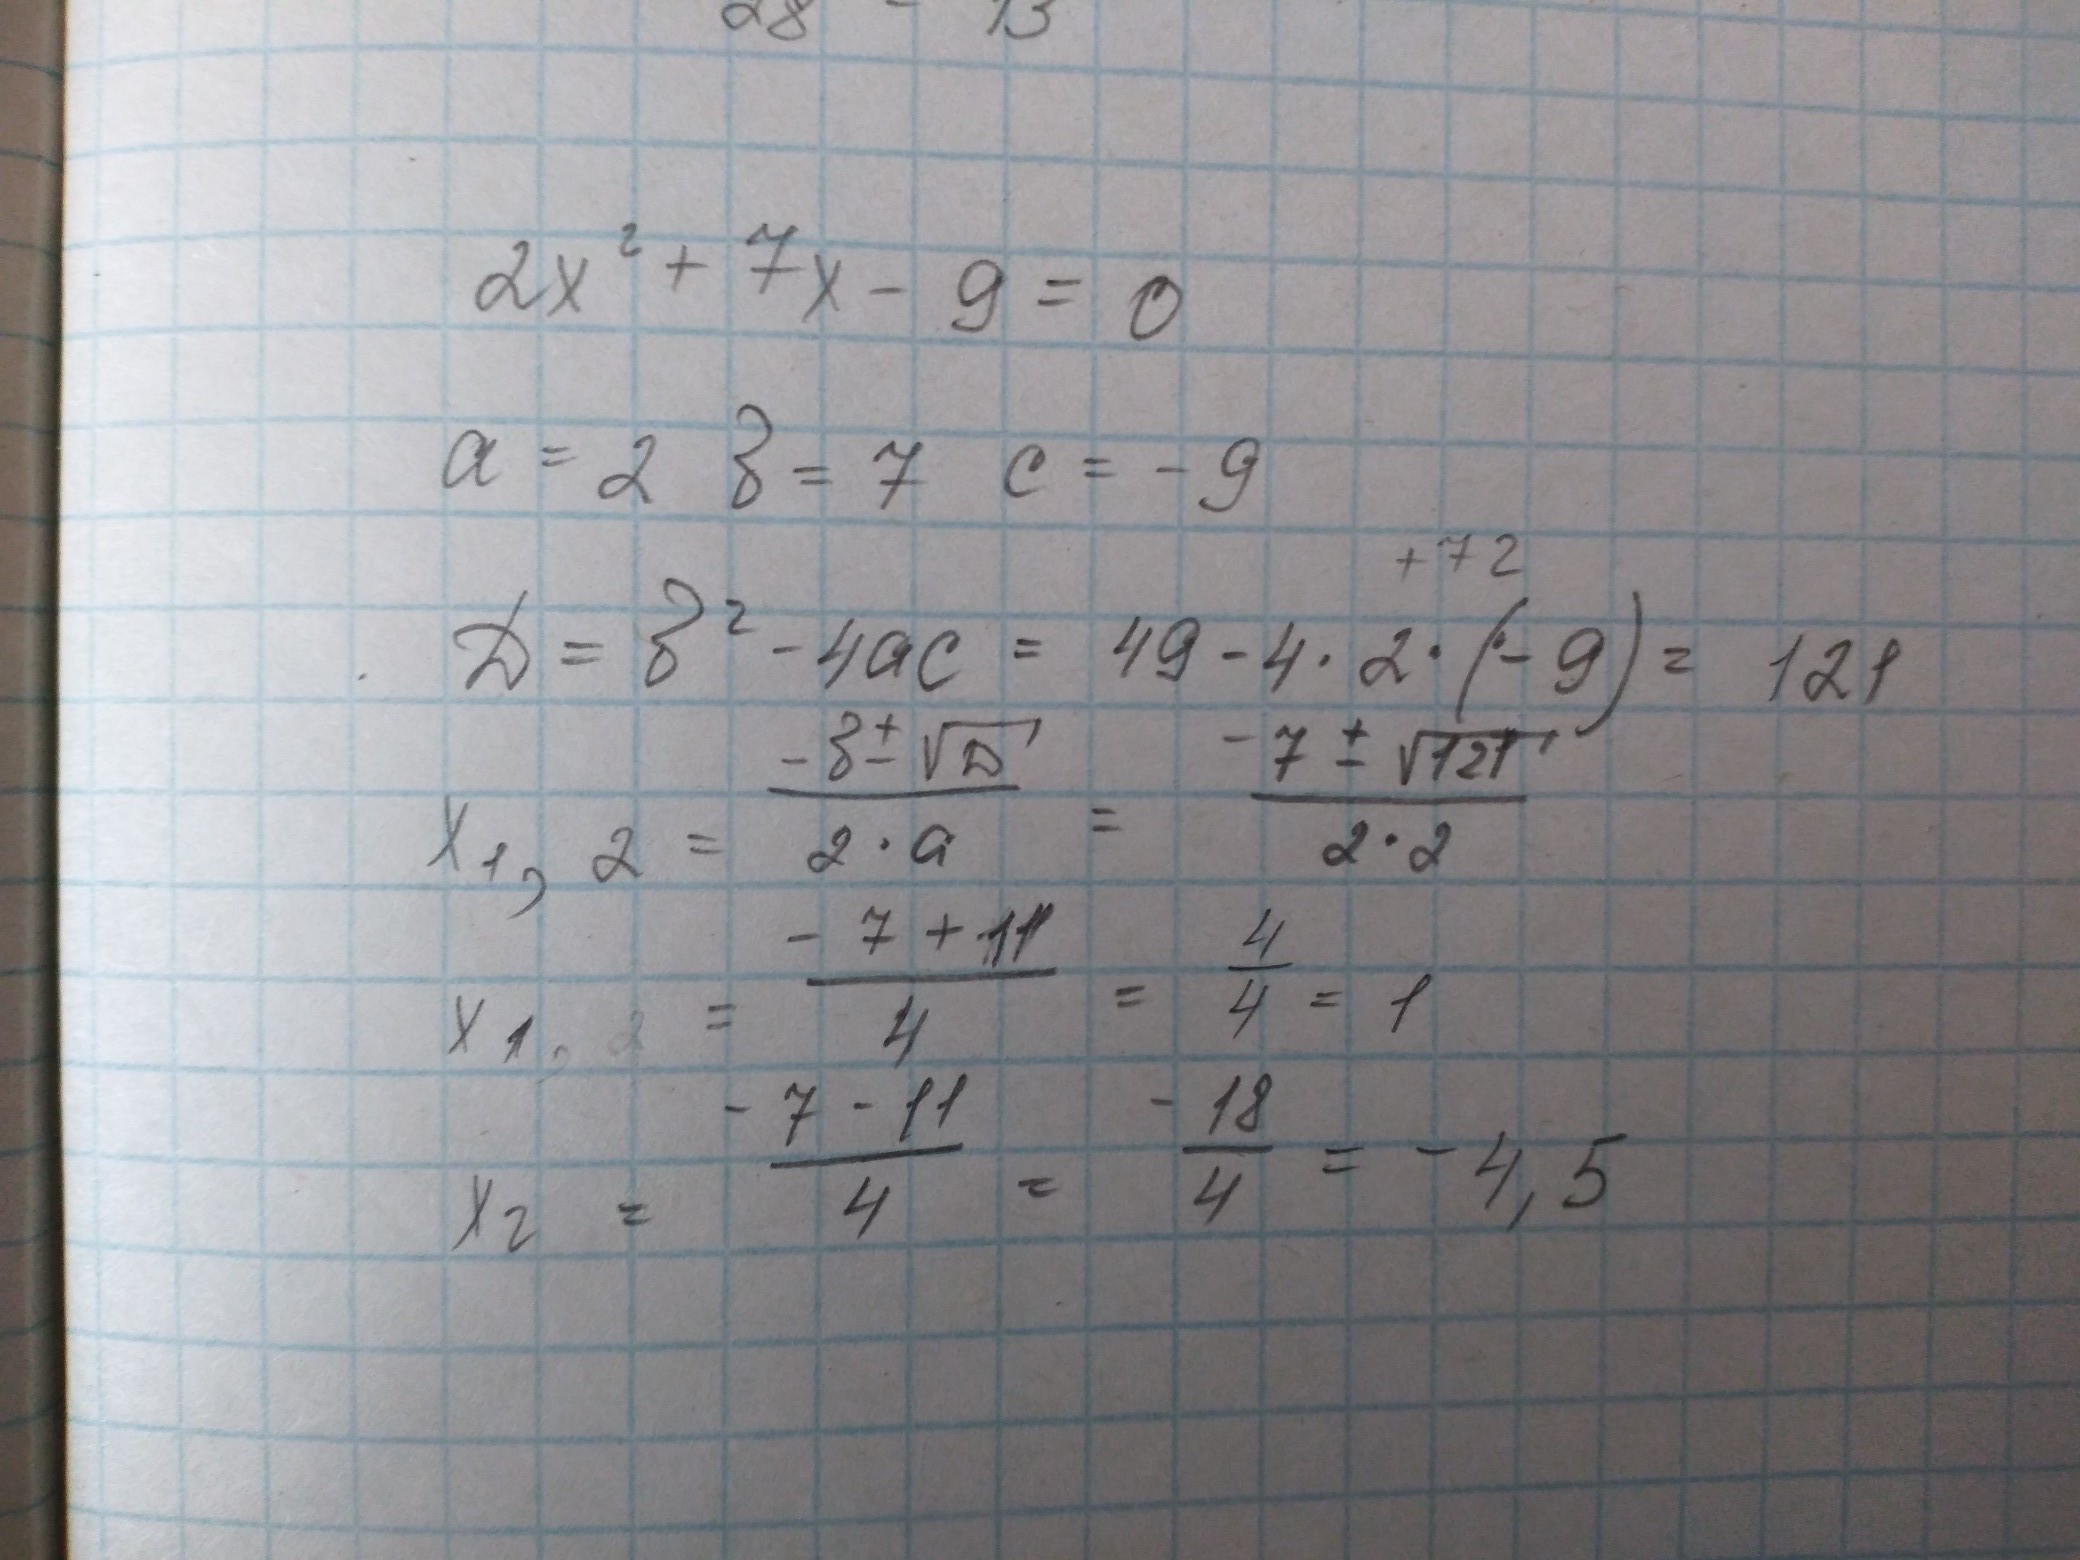 28 - 13
2x² + 7x - 9 = 0
a = 2 в = 7 c = -9
+72
D = в² - 4ac = 49 - 4 · 2 · (-9) = 121
x₁,₂ = (-в ± √D)/(2 · a) = (-7 ± √121)/(2 · 2)
x₁,₂ = (-7 + 11)/4 = 4/4 = 1
x₂ = (-7 - 11)/4 = -18/4 = -4,5